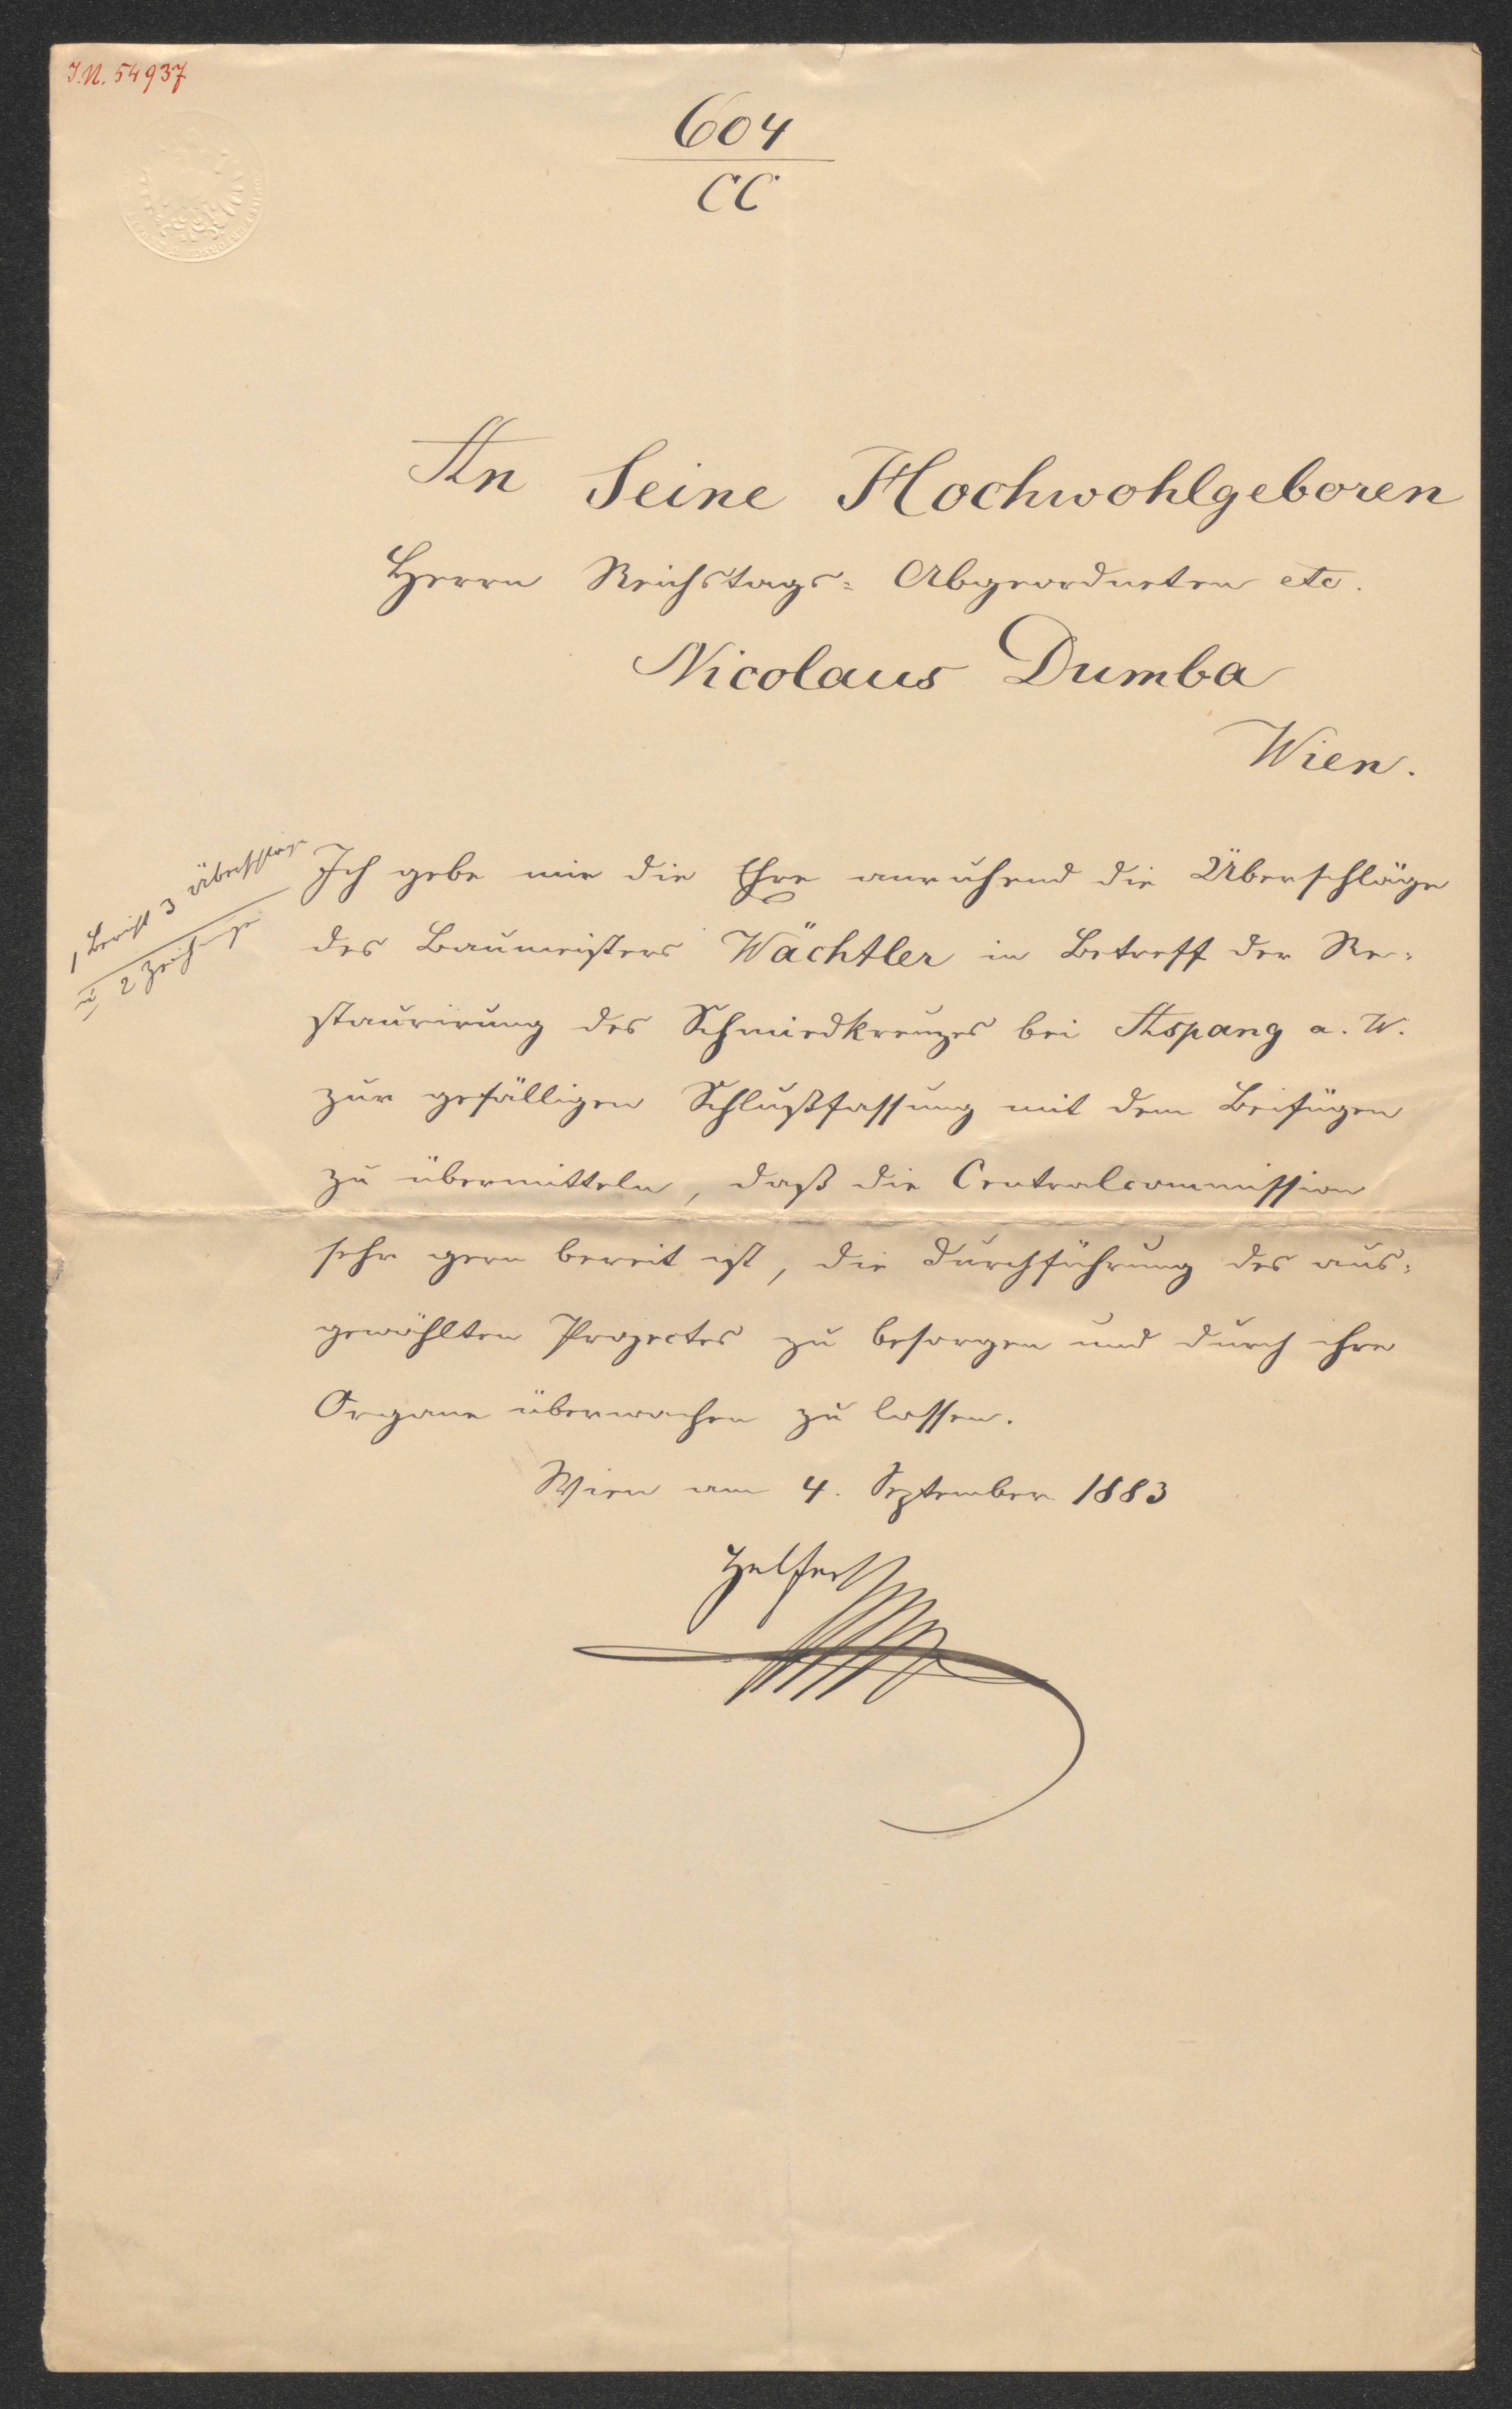 I.N. 54937
604
CC
An Seine Hochwohlgeboren
Herrn Reichstags= Abgeordneten etc.
Nicolaus Dumba
Wien.
1 Bericht 3 Überschläge
u. 2 Zeichnungen
Ich gebe mir die Ehre anruhend die Überschläge
des Baumeisters Wächtler in Betreff der Re=
staurirung des Schmiedkreuzes bei Aspang a. W.
zur gefälligen Schlußfassung mit dem Beifügen
zu übermitteln, daß die Centralcommission
sehr gern bereit ist, die Durchführung des aus=
gewählten Projectes zu besorgen und durch ihre
Organe überwachen zu lassen.
Wien am 4. September 1883
Helfert